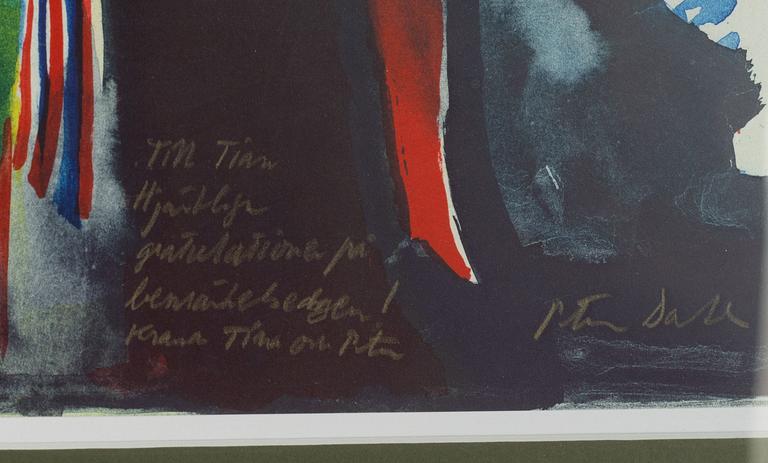 Till Tian
Hjärtliga
gratulationer på
bemärkelsedagen!
Kram Tian och Peter
Peter Dahl